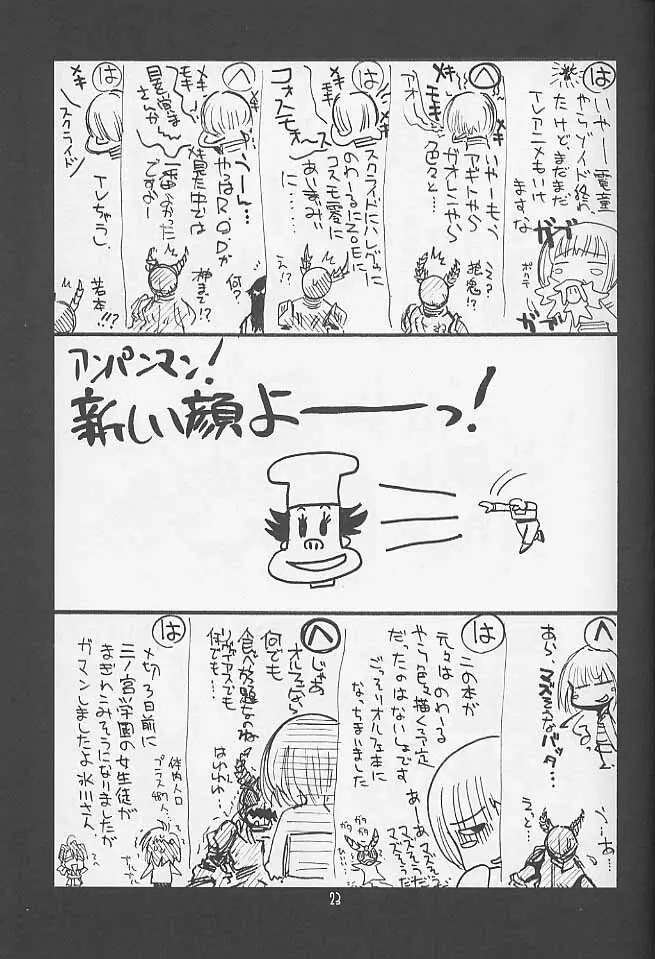 は
いやー電童
やらゾイド終わっ
たけど、まだまだ
TVアニメもいけ
ますな
ガブ
ガブ
ヘ
いやーもう
アギトやら
ガオレンやら
色々と…
メキ
モキ
は
スクライドにハレグゥに
のわーるにZ.O.Eに
コスモ零に
あじまぁに
に……
え?!?
コォスモォース
メキ
ヘ
うーん…
やっぱR.O.Dが
見た中では
一番よかった
ですよー
神まで!?
何?
メキ
は
TVちゃうし
スクライド
メキ
若本!!?
アンパンマン!
新しい顔よーーっ!
ヘ
あら、マズそうなバッタ…
う…あ…
えっと…
は
この本が
元々はのわーる
やら色々描く予定
だったのはないしょです
ごっそりオルフェ本に
なっちまいました
あーあマズそうだ
マズそうだ
マズそうだ
ヘ
じゃあ
オルフェなら
何でも
食べ放題なのね
リヴァイアスでも
何でも…
はわわわ…
は
〆切3日前に
三ノ宮学園の女生徒が
まぎれこみそうになりましたが
ガマンしましたよ氷川さん
体内人口
プラス487人
23